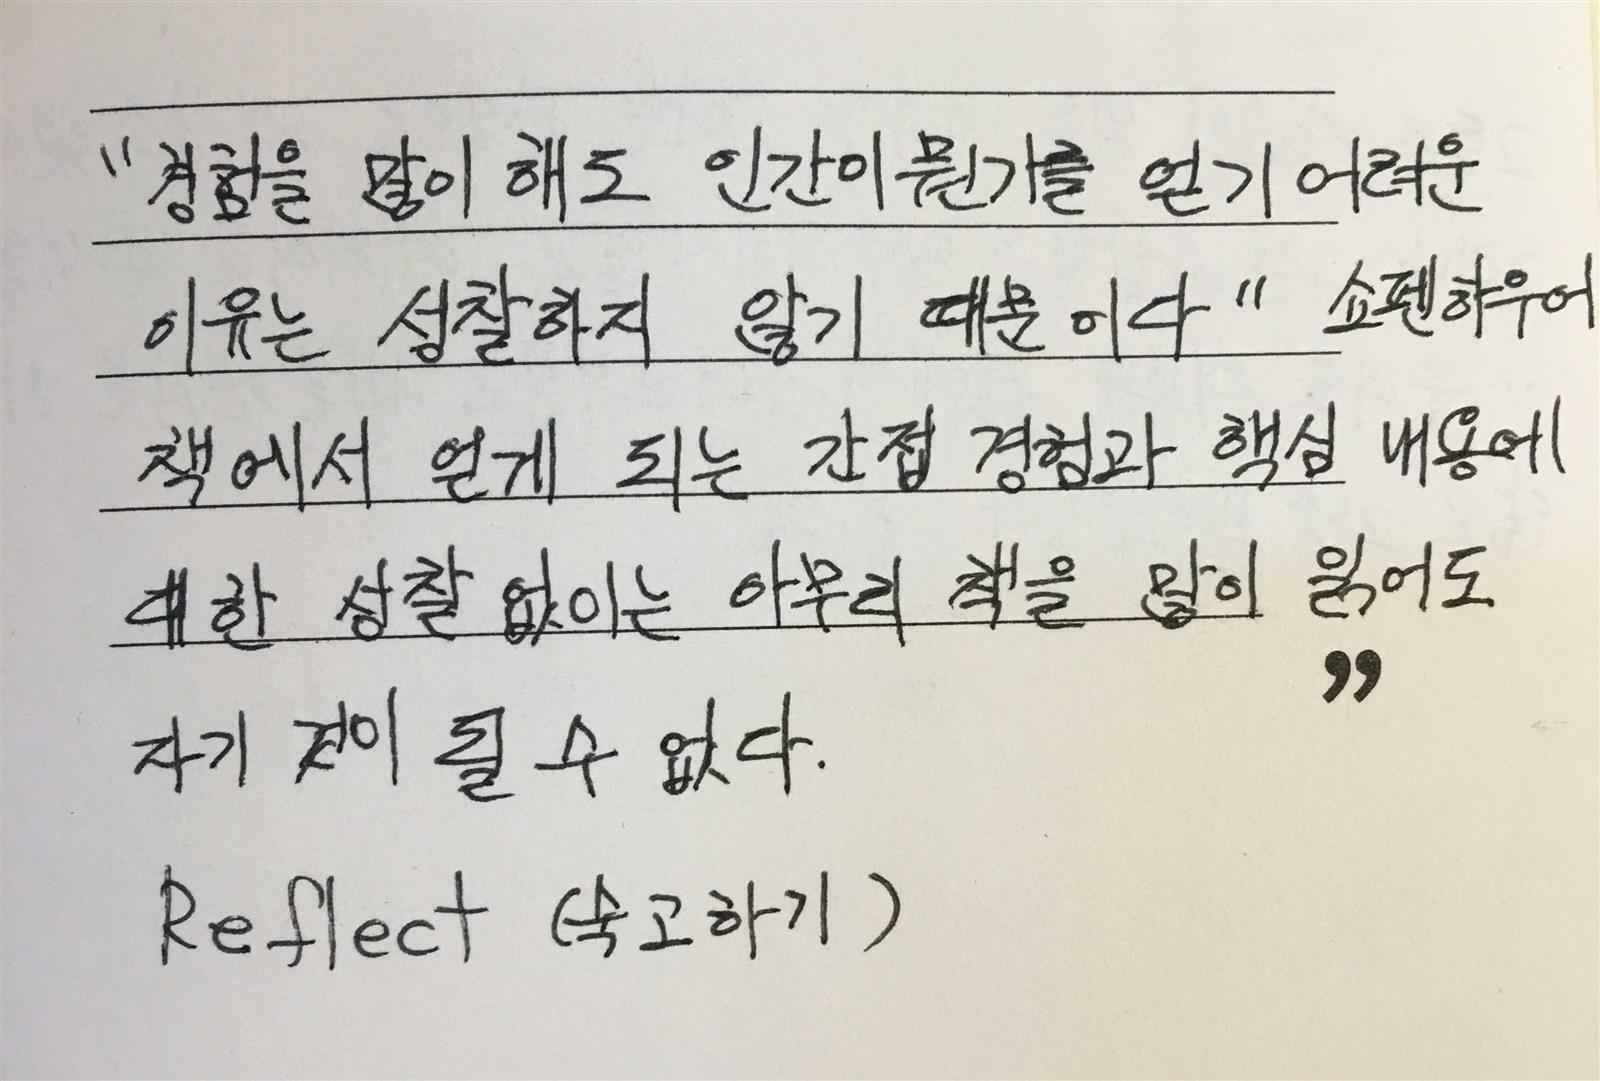 "경험을 많이 해도 인간이 뭔가를 얻기 어려운
이유는 성찰하지 않기 때문이다" 쇼펜하우어
책에서 얻게 되는 간접 경험과 핵심 내용에
대한 성찰 없이는 아무리 책을 많이 읽어도
”
자기 것이 될 수 없다.
Reflect (숙고하기)